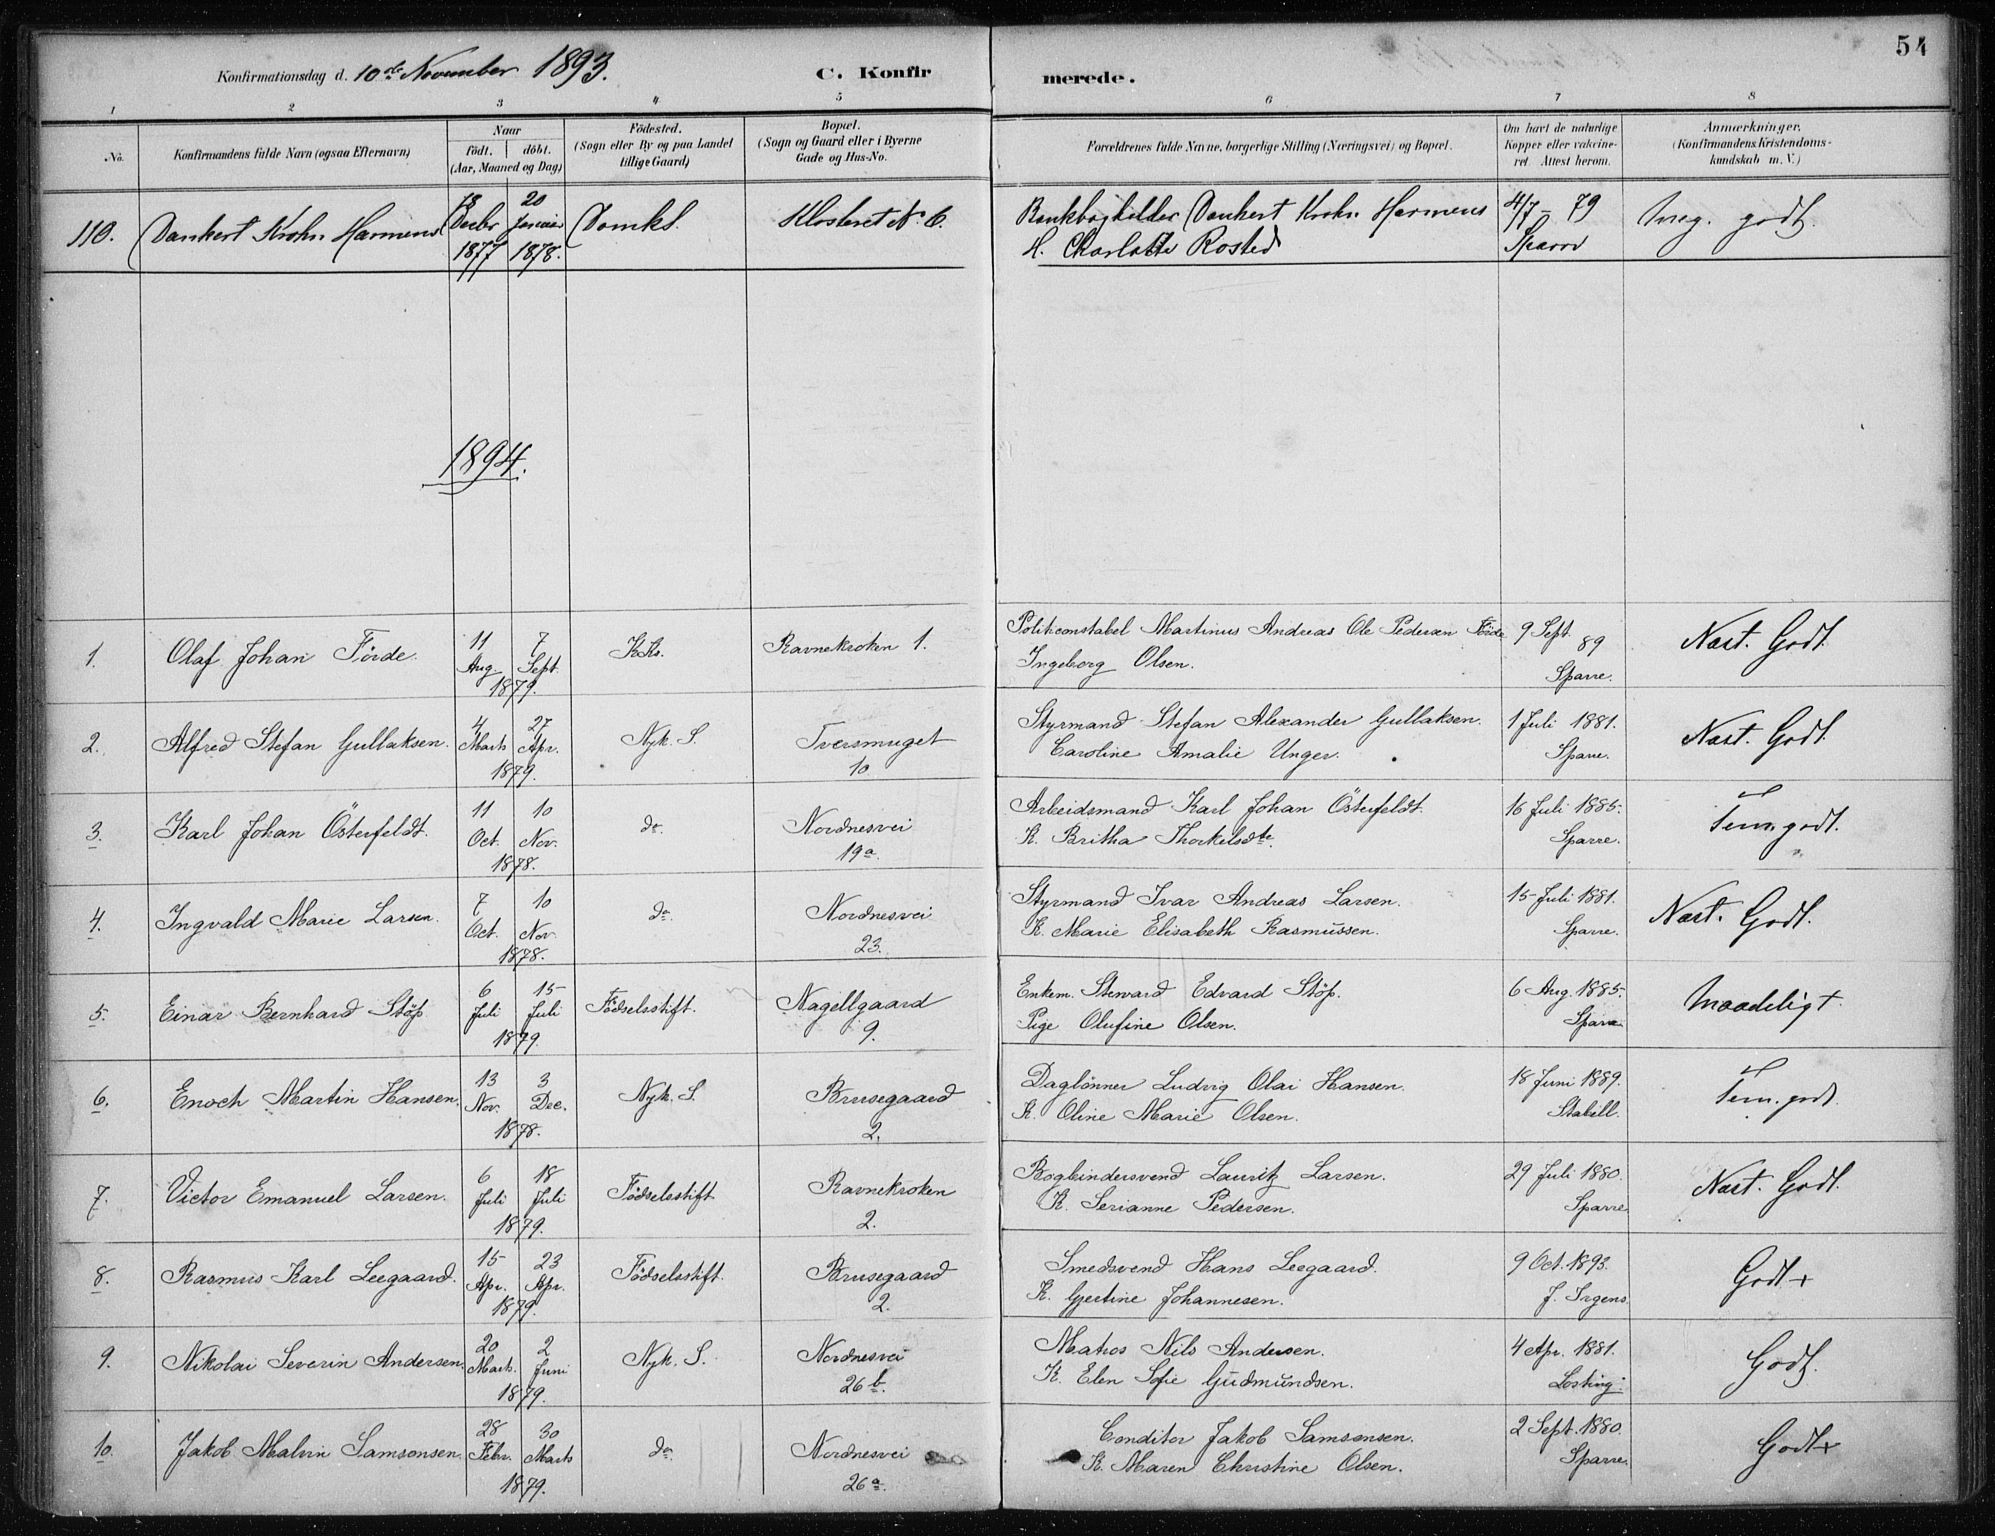 54
Konfirmationsdag d. 10de November 1893.
C. Konfirmerede.
1 2 3 4 5 6 7 8
No.
Konfirmandens fulde Navn (ogsaa Efternavn)
Naar
födt. döbt.
(Aar, Maaned og Dag)
Födested.
(Sogn eller By og paa Landet
tillige Gaard)
Bopæl.
(Sogn og Gaard eller i Byerne
Gade og Hus-No.
Forældrenes fulde Navne, borgerlige Stilling (Næringsvei) og Bopæl.
Om havt de naturlige
Kopper eller vakcine-
ret. Attest herom.
Anmærkninger.
(Konfirmandens Kristendoms-
kundskab m. V.)
110. Dankert Krohn Harmens 18 Decbr 1877 20 Januar 1878. Domks. Klosteret No 6. Bankbogholder Dankert Krohn Harmens 4/7 - 79 Meg. godt.
H. Charlotte Rosted Sparre
1894.
1. Olaf Johan Förde. 11 Aug. 7 Sept. 1879. KKr. Ravnekroken 1. Politiconstabel Martinus Andreas Ole Pedersen Förde 9 Sept. 89 Næst. Godt.
Ingeborg Olsen. Sparre.
2. Alfred Stefan Gullaksen. 4 Marts 27 Apr. 1879. Nyk. S. Tversmuget 10 Styrmand Stefan Alexander Gullaksen. 1 Juli 1881. Næst. Godt.
Caroline Amalie Unger. Sparre.
3. Karl Johan Österfeldt. 11 Oct. 10 Nov. 1878. do. Nordnesvei 19a. Arbeidsmand Karl Johan Österfeldt. 16 Juli 1885. Tem. godt.
K. Britha Thorkelsdtr. Sparre.
4. Ingvald Marie Larsen. 7 Oct. 10 Nov. 1878. do. Nordnesvei 23. Styrmand Ivar Andreas Larsen. 15 Juli 1881. Næst. Godt.
K. Marie Elisabeth Rasmussen. Sparre.
5. Einar Bernhard Stöp 6 Juli 15 Juli 1879. Födselsstift. Nagellgaard 9. Enkem. Steward Edvard Stöp. 6 Aug. 1885. Maadeligt.
Pige Olufine Olsen. Sparre
6. Enoch Martin Hansen. 13 Nov. 3 Dec. 1878. Nyk. S. Brusegaard 2. Daglönner Ludvig Olai Hansen. 18 Juni 1889. Tem. godt.
K. Oline Marie Olsen. Stabell.
7. Victor Emanuel Larsen. 6 Juli 18 Juli 1879. Födselsstift. Ravnekroken 2. Bogbindersvend Lauritz Larsen. 29 Juli 1880. Næst. Godt.
K. Serianne Pedersen. Sparre.
8. Rasmus Karl Leegaard. 15 Apr. 23 Apr. 1879. Födselsstift. Brusegaard 2. Smedsvend Hans Leegaard. 9 Oct. 1893. Godt +
K. Gjertine Johannesen. J. Irgens.
9. Nikolai Severin Andersen. 20 Marts. 2 Juni 1879. Nyk. S. Nordnesvei 26b. Matros Nils Andersen. 4 Apr. 1881. Godt.
K. Elen Sofie Gudmundsen. Losting.
10. Jakob Malvin Samsonsen. 28 Febr. 30 Marts 1879. do. Nordnesvei 26a. Conditor Jakob Samsonsen. 2 Sept. 1880. Godt+
K. Maren Christine Olsen. Sparre.